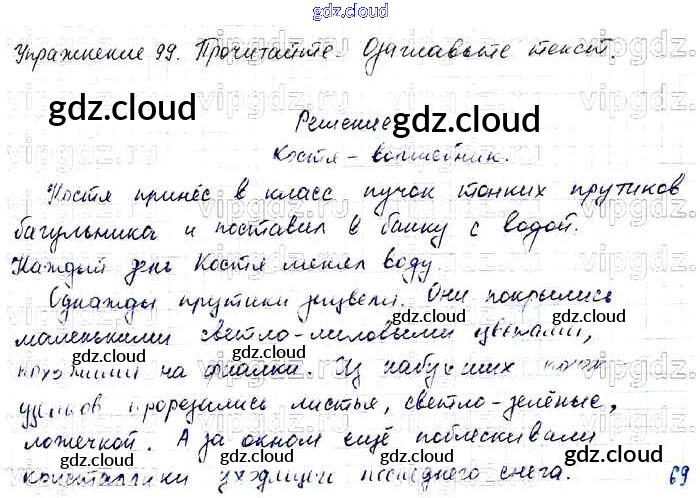 gdz.cloud
Упражнение 99. Прочитайте. Озаглавьте текст.
gdz.cloud
Решение gdz.cloud
Костя - волшебник.
Костя принёс в класс пучок тонких прутиков
багульника и поставил в банку с водой.
Каждый день Костя менял воду.
gdz.cloud
Однажды прутики зацвели. Они покрылись
маленькими светло-лиловыми цветками,
gdz.cloud gdz.cloud
похожими на фиалки. Из набухших почек
узелков прорезились листья, светло-зелёные,
gdz.cloud gdz.cloud
ложечкой. А за окном ещё поблескивали
кристаллики уходящего последнего снега. 69
gdz.cloud gdz.cloud